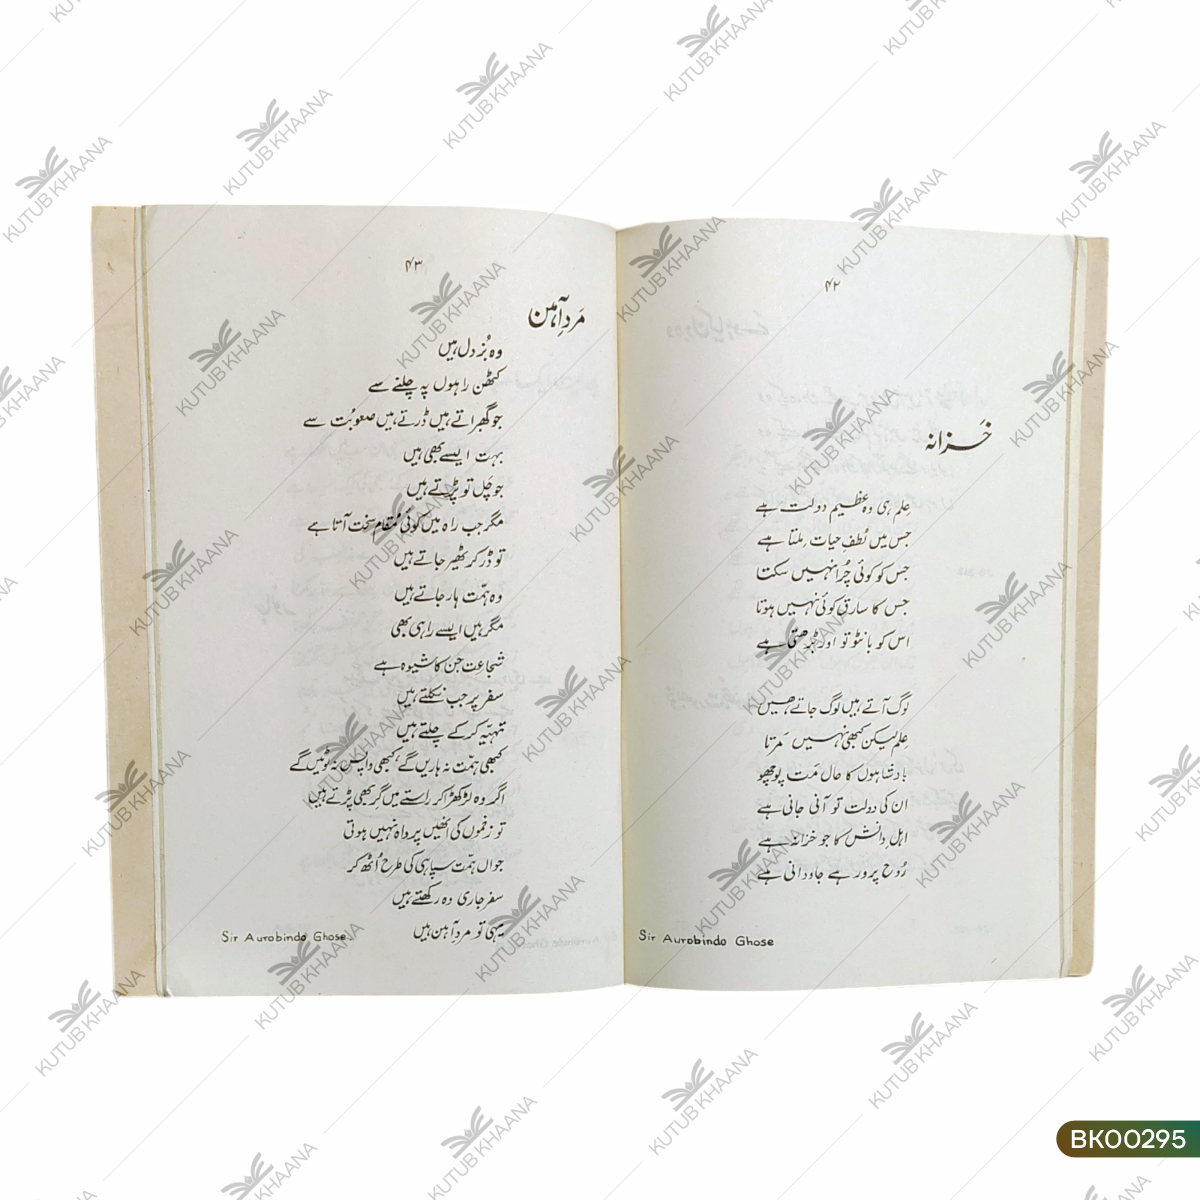 ۴۲
خُزانہ
عِلم ہی وہ عظیم دولت ہے
جس میں لُطفِ حیات مِلتا ہے
جس کو کوئی چُرا نہیں سکتا
جس کا سارق کوئی نہیں ہوتا
اس کو بانٹو تو اور بڑھتی ہے
لوگ آتے ہیں لوگ جاتے ہیں
عِلم لیکن کبھی نہیں مَرتا
بادشاہوں کا حال مَت پوچھو
ان کی دولت تو آنی جانی ہے
اہلِ دانش کا جو خزانہ ہے
رُوح پرور ہے جاودانی ہے
Sir Aurobindo Ghose
۴۳
مَردِ آہن
وہ بُزدل ہیں
کٹھن راہوں پہ چلنے سے
جو گھبراتے ہیں ڈرتے ہیں صعوبُت سے
بہت ایسے بھی ہیں
جو چَل تو پڑتے ہیں
مگر جب راہ میں کوئی مُقامِ سخت آتا ہے
تو ڈر کر ٹھیر جاتے ہیں
وہ ہمّت ہار جاتے ہیں
مگر ہیں ایسے راہی بھی
شجاعت جن کا شیوہ ہے
سفر پر جب نکلتے ہیں
تہیّہ کر کے چلتے ہیں
کبھی ہمّت نہ ہاریں گے، کبھی واپس نہ لوٹیں گے
اگر وہ لڑکھڑا کر راستے میں گر بھی پڑتے ہیں
تو زخموں کی انھیں پرواہ نہیں ہوتی
جواں ہمّت سپاہی کی طرح اُٹھ کر
سفر جاری وہ رکھتے ہیں
یہی تو مردِ آہن ہیں
Sir Aurobindo Ghose
KUTUB KHAANA
BK00295